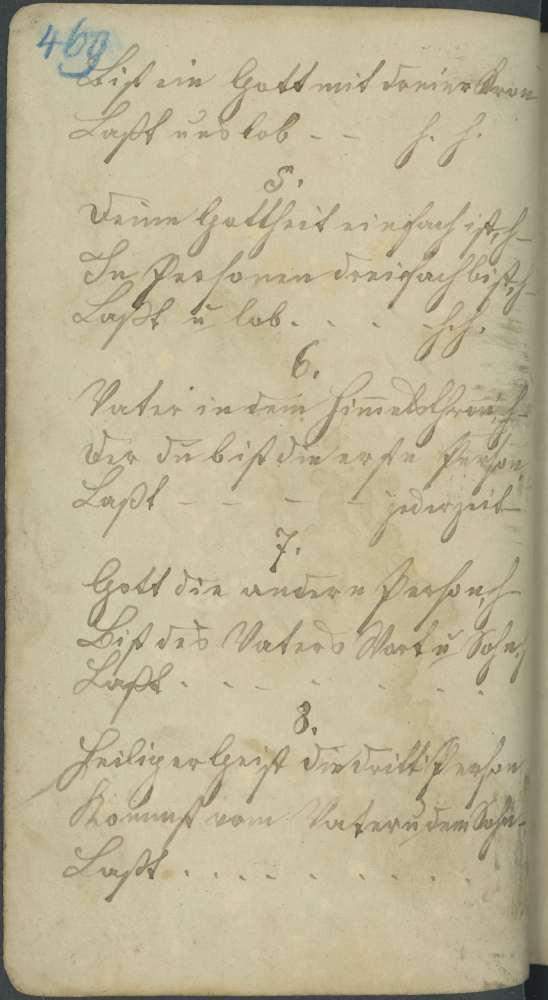 469
Bist ein Gott mit dreier Kron
Laßt uns lob – – h. h.
5.
Deine Gottheit einfach ist, h–
In Personen dreifach bist, h–
Laßt u lob. . . . h. h.
6.
Vater in dem Himmelsthron, h–
Der du bist die erste Person,
Laßt – – – – jederzeit–
7.
Gott die andere Person, h–
Bist des Vaters Wort u Sohn,
Laßt . . – . . . .
8.
Heiliger Geist die dritt Person
Kommst vom Vater u dem Sohn.
Laßt . . . . . . . . .